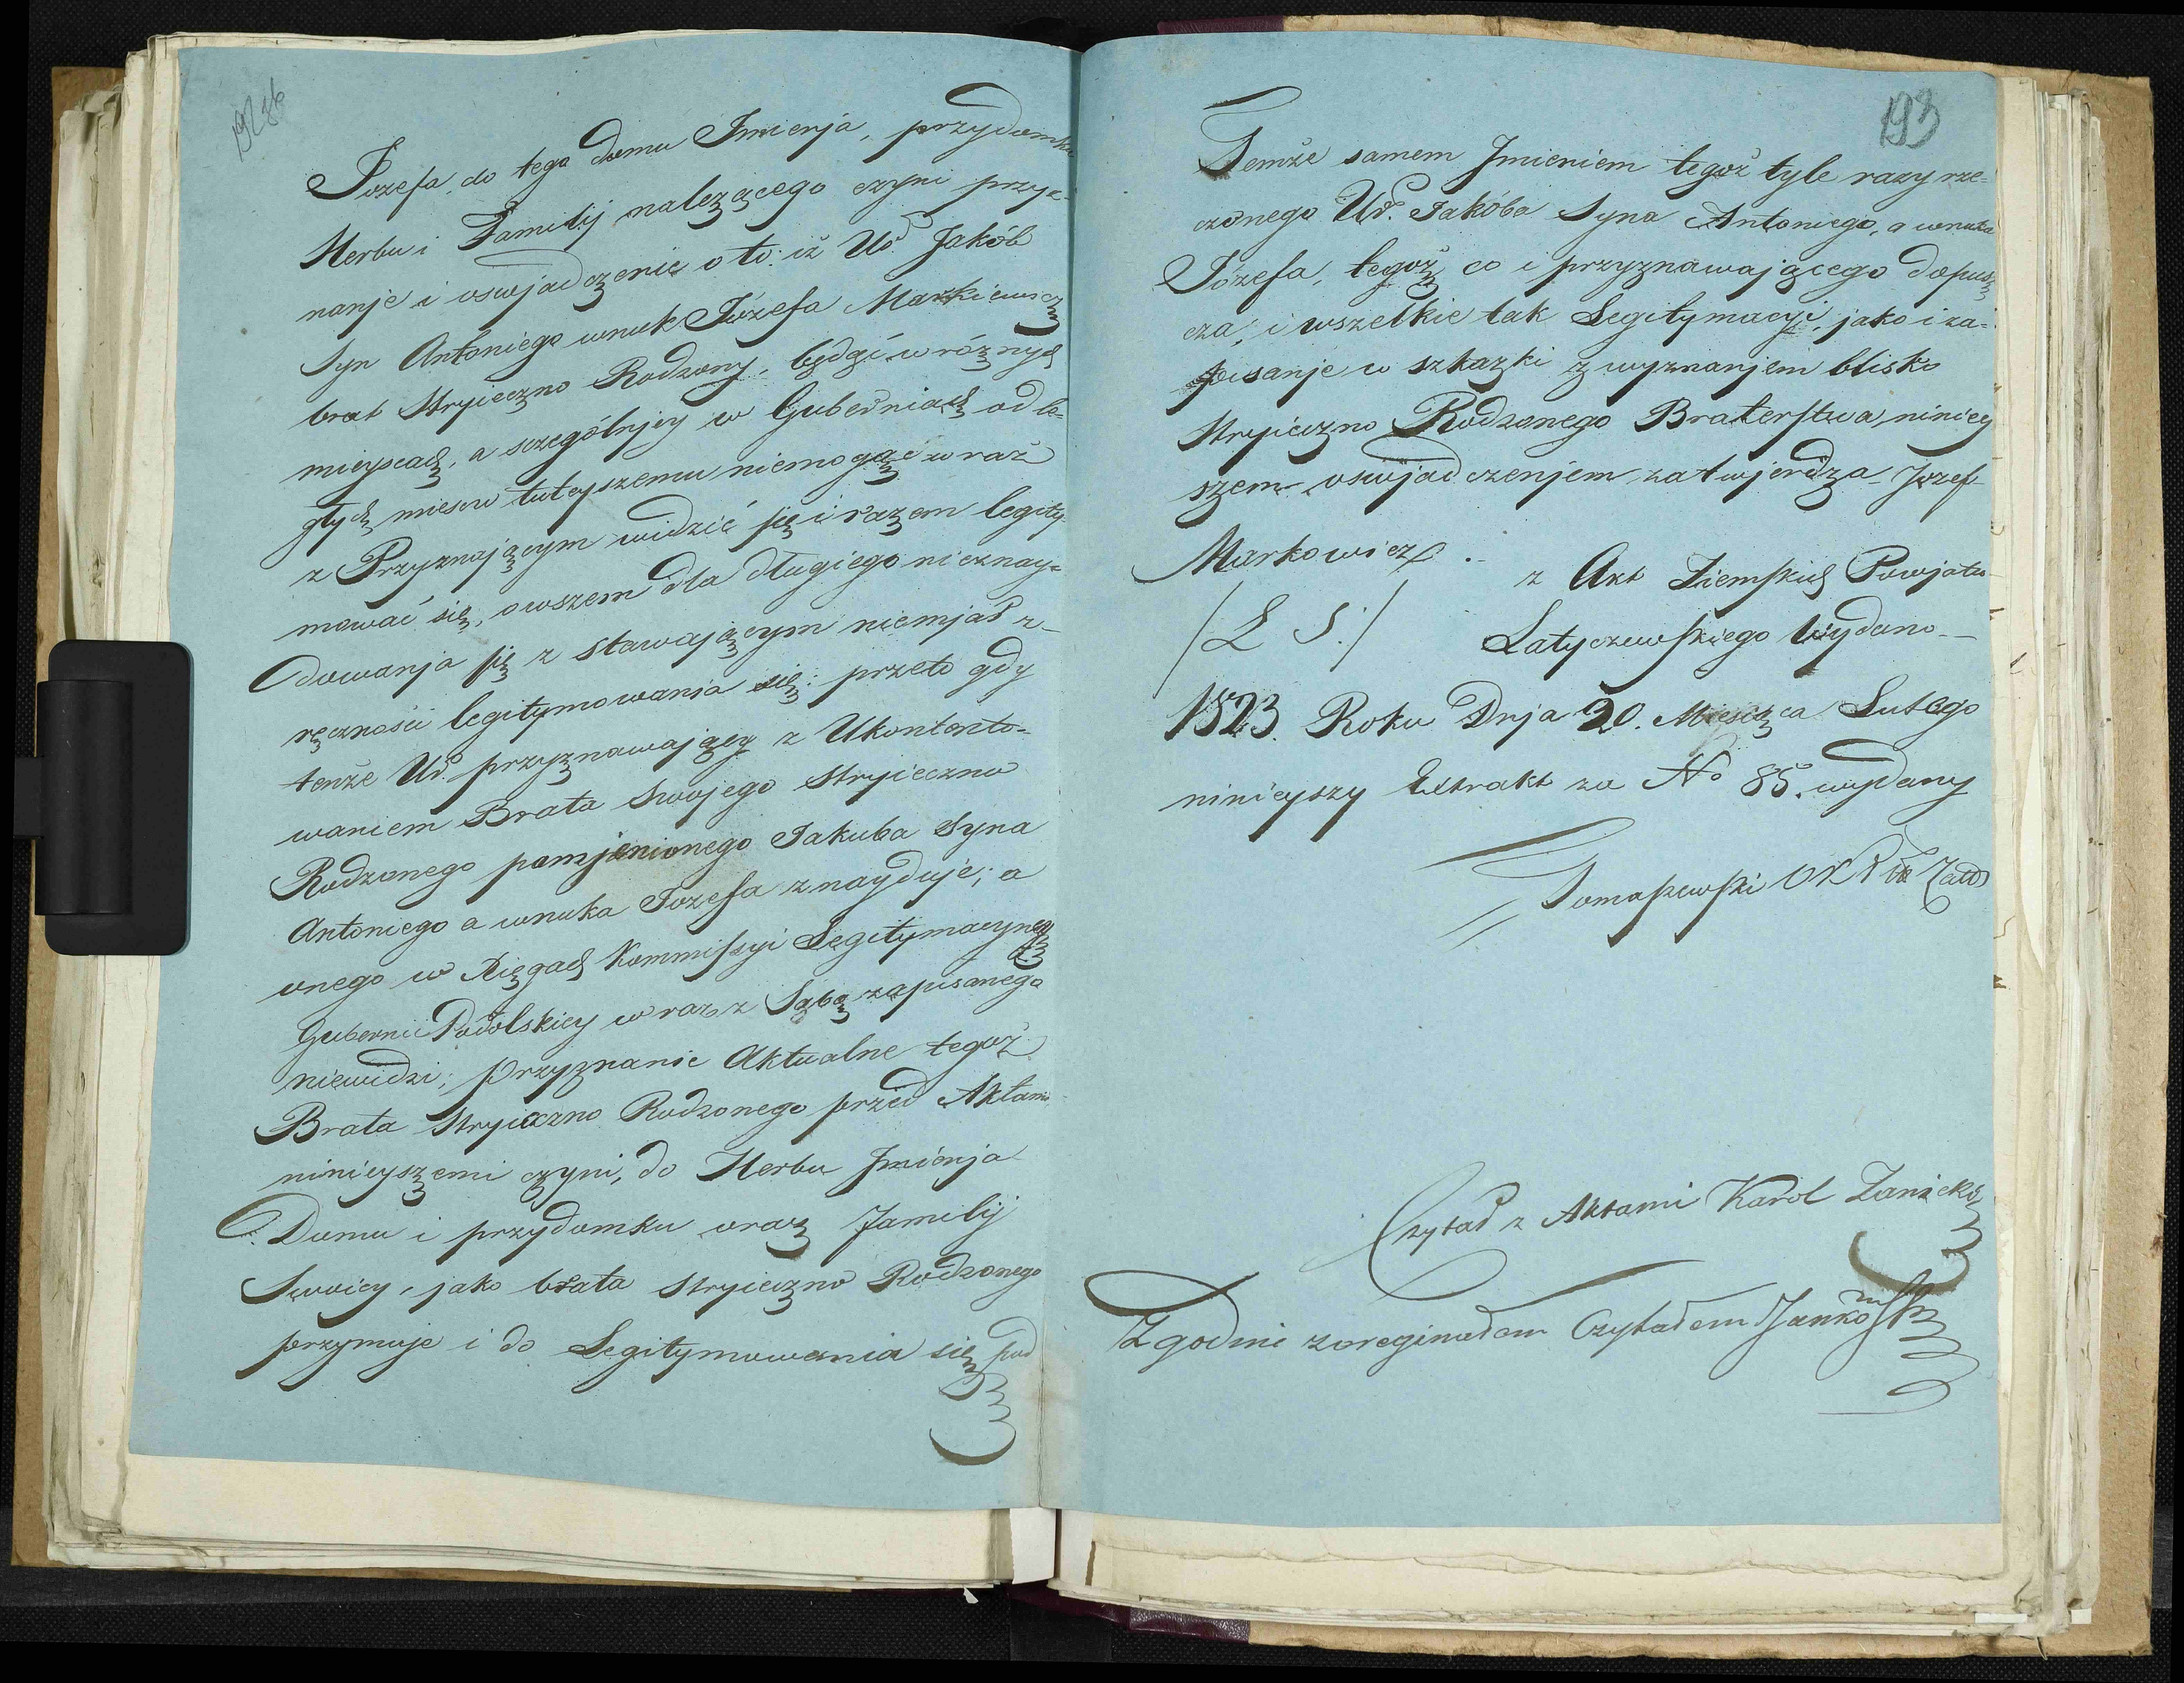 Jozefa, do tego domu Jmienja, przydomku
Herbu i Familij należącego czyni przyz-
nanje i oswjadczenie o to: iż Ur. Jakób
Syn Antoniego wnuk Józefa Markiewicz
brat Stryieczno Rodzony, będąc w różnych
mieyscach, a szczególnjey w Guberniach odle-
głych miescu tuteyszemu niemogąc wraz
z Przyznającym widzić się i razem legity-
mować się, owszem dla długiego nieznay-
dowanja się z stawającym niemjał z-
ręcznosci legitymowania się: przeto gdy
tenże Ur. przyznawający z Ukontento-
waniem Brata swojego Stryieczno
Rodzonego pomjenionego Jakuba Syna
Antoniego a wnuka Jozefa znayduje; a
onego w Xięgach Kommissyi Legitymacyney
Gubernii Podolskiey wraz z Sobą zapisanego
niewidzi; przyznanie Aktualne tegoż
Brata Stryieczno Rodzonego przed Aktami
ninieyszemi czyni, do Herbu Jmienja
Domu i przydomku oraz Familij
Swoiey, jako brata stryieczno Rodzonego
przymuje i do Legitymowania się pod
193
Temże samem Jmieniem tegoż tyle razy rze-
czonego Ur. Jakóba Syna Antoniego, a wnuka
Józefa, tegoż co i przyznawającego dopusz
cza, i wszelkie tak Legitymacyi, jako i za-
pisanje w szkazki z wyznanjem blisko
Stryieczno Rodzonego Braterstwa, niniey
szem oswjadczenjem zatwjerdza Jozef
Markowicz.
z Akt Ziemskich Powjatu
/L S./
Latyczewskiego Wydano
1823 Roku Dnja 20. Miesiąca Lutego
ninieyszy Extrakt za No 85. wydany
Tomaszewski
Czytał z Aktami Karol Zanicki
Zgodnie z oreginałem Czytałem